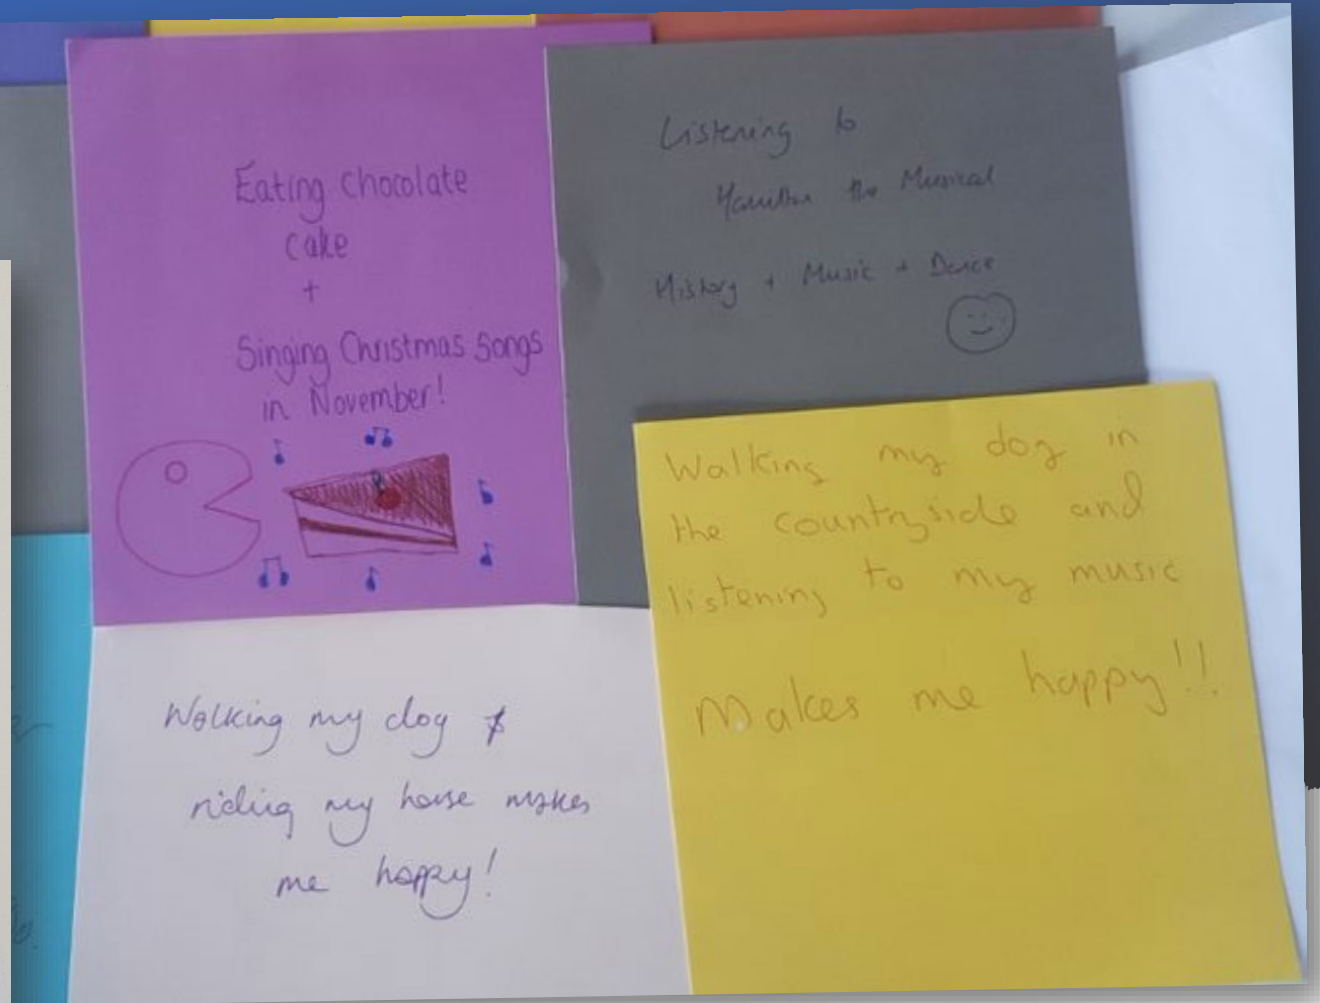 Eating Chocolate
Cake
+
Singing Christmas Songs
in November!
Listening to
Hamilton the Musical
History + Music + Dance
Walking my dog in
the countryside and
listening to my music
Makes me happy!!
Walking my dog &
riding my horse makes
me happy!